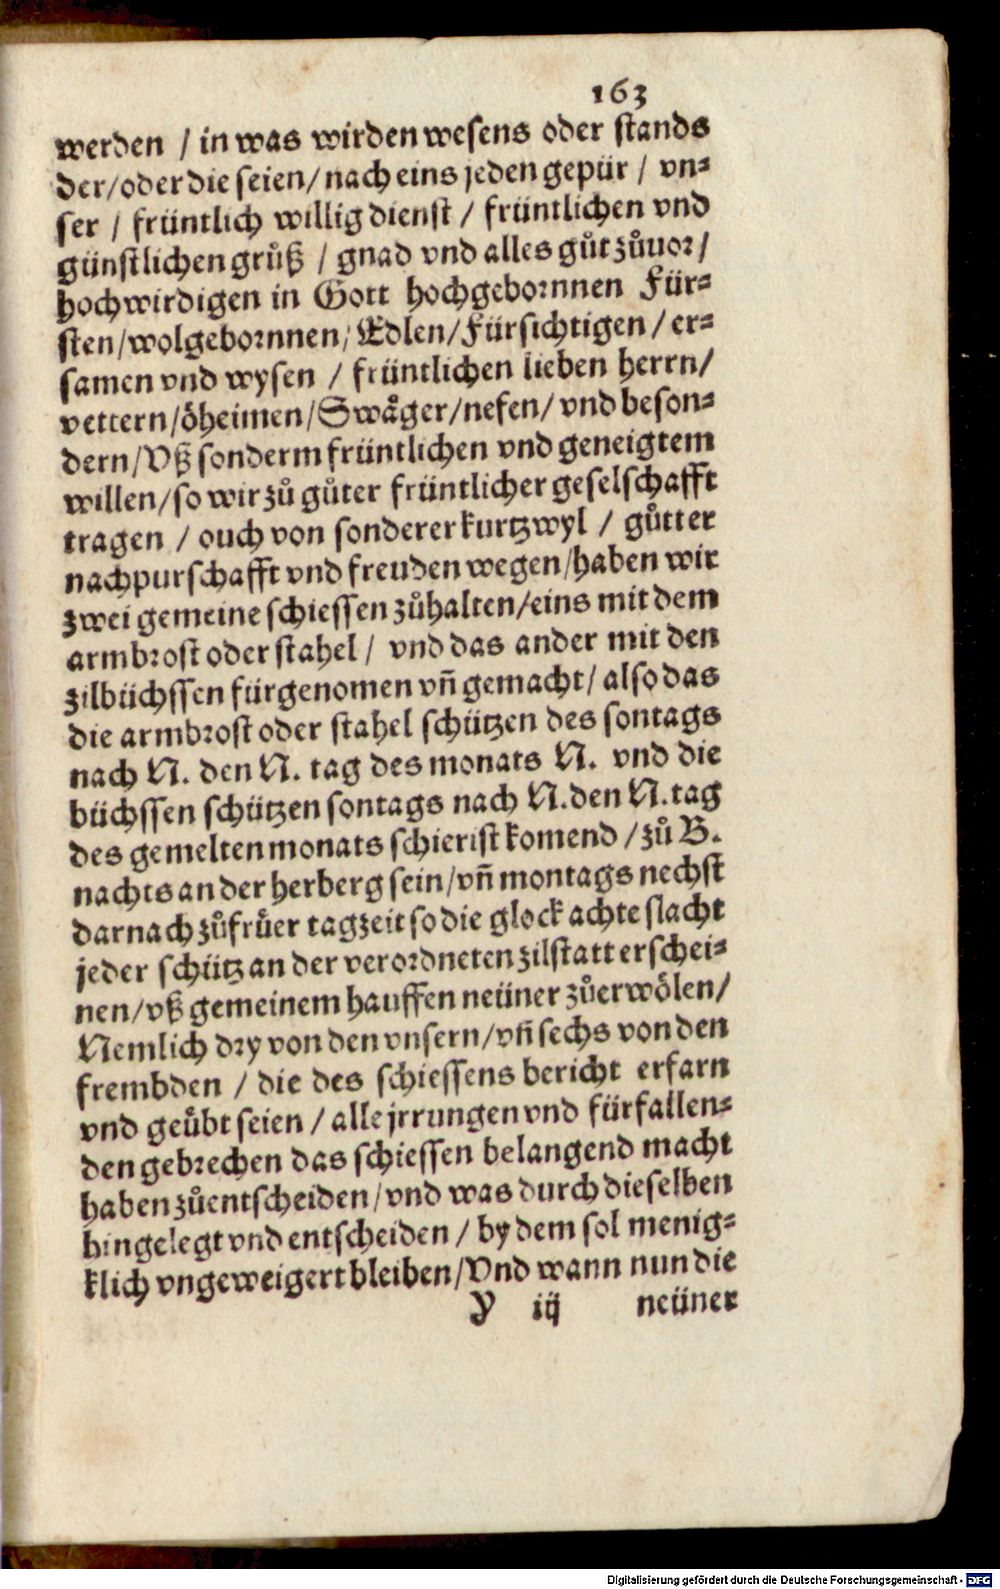 163
werden / in was wirden wesens oder stands
der/oder die seien/nach eins jeden gepür / vn⸗
ser / früntlich willig dienst / früntlichen vnd
günstlichen grůß / gnad vnd alles gůt zůuor/
hochwirdigen in Gott hochgebornnen Für⸗
sten/wolgebornnen/ Edlen/Fürsichtigen / er⸗
samen vnd wysen / früntlichen lieben herrn/
vettern/öheimen/Swåger/nefen/ vnd beson⸗
dern/Vß sonderm früntlichen vnd geneigtem
willen/so wir zů gůter früntlicher geselschafft
tragen / ouch von sonderer kurtzwyl / gůtter
nachpurschafft vnd freuden wegen/haben wir
zwei gemeine schiessen zůhalten/eins mit dem
armbrost oder stahel / vnd das ander mit den
zilbüchssen fürgenomen vñ gemacht/ also das
die armbrost oder stahel schützen des sontags
nach N. den N. tag des monats N. vnd die
büchssen schützen sontags nach N.den N.tag
des gemelten monats schierist komend / zů B.
nachts an der herberg sein/vñ montags nechst
darnach zůfrůer tagzeit so die glock achte slacht
jeder schütz an der verordneten zilstatt erschei⸗
nen/vß gemeinem hauffen neüner zůerwölen/
Nemlich dry von den vnsern/vñ sechs von den
frembden / die des schiessens bericht erfarn
vnd geůbt seien / alle jrrungen vnd fürfallen⸗
den gebrechen das schiessen belangend macht
haben zůentscheiden/vnd was durch dieselben
hingelegt vnd entscheiden / by dem sol menig⸗
klich vngeweigert bleiben/Vnd wann nun die
Y iij neüner
Digitalisierung gefördert durch die Deutsche Forschungsgemeinschaft - DFG